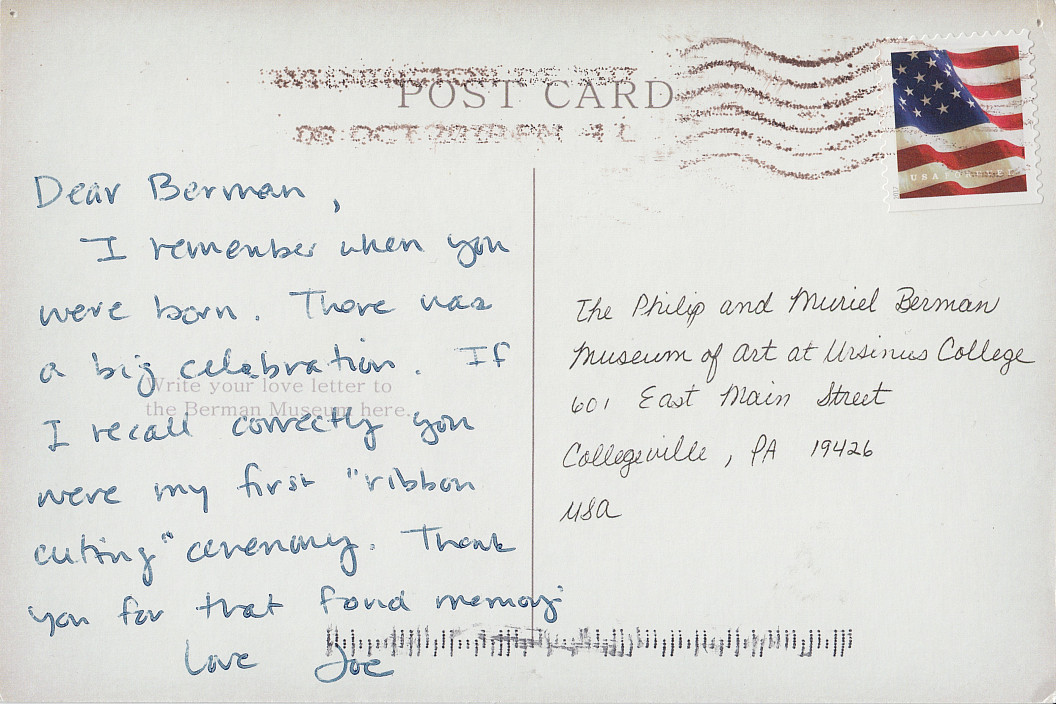 POST CARD
Dear Berman,
I remember when you
were born. There was
a big celebration. If
I recall correctly you
were my first "ribbon
cutting" ceremony. Thank
you for that fond memory.
Love Joe
Write your love letter to
the Berman Museum here.
USA FOREVER
The Philip and Muriel Berman
Museum of Art at Ursinus College
601 East Main Street
Collegeville, PA 19426
USA